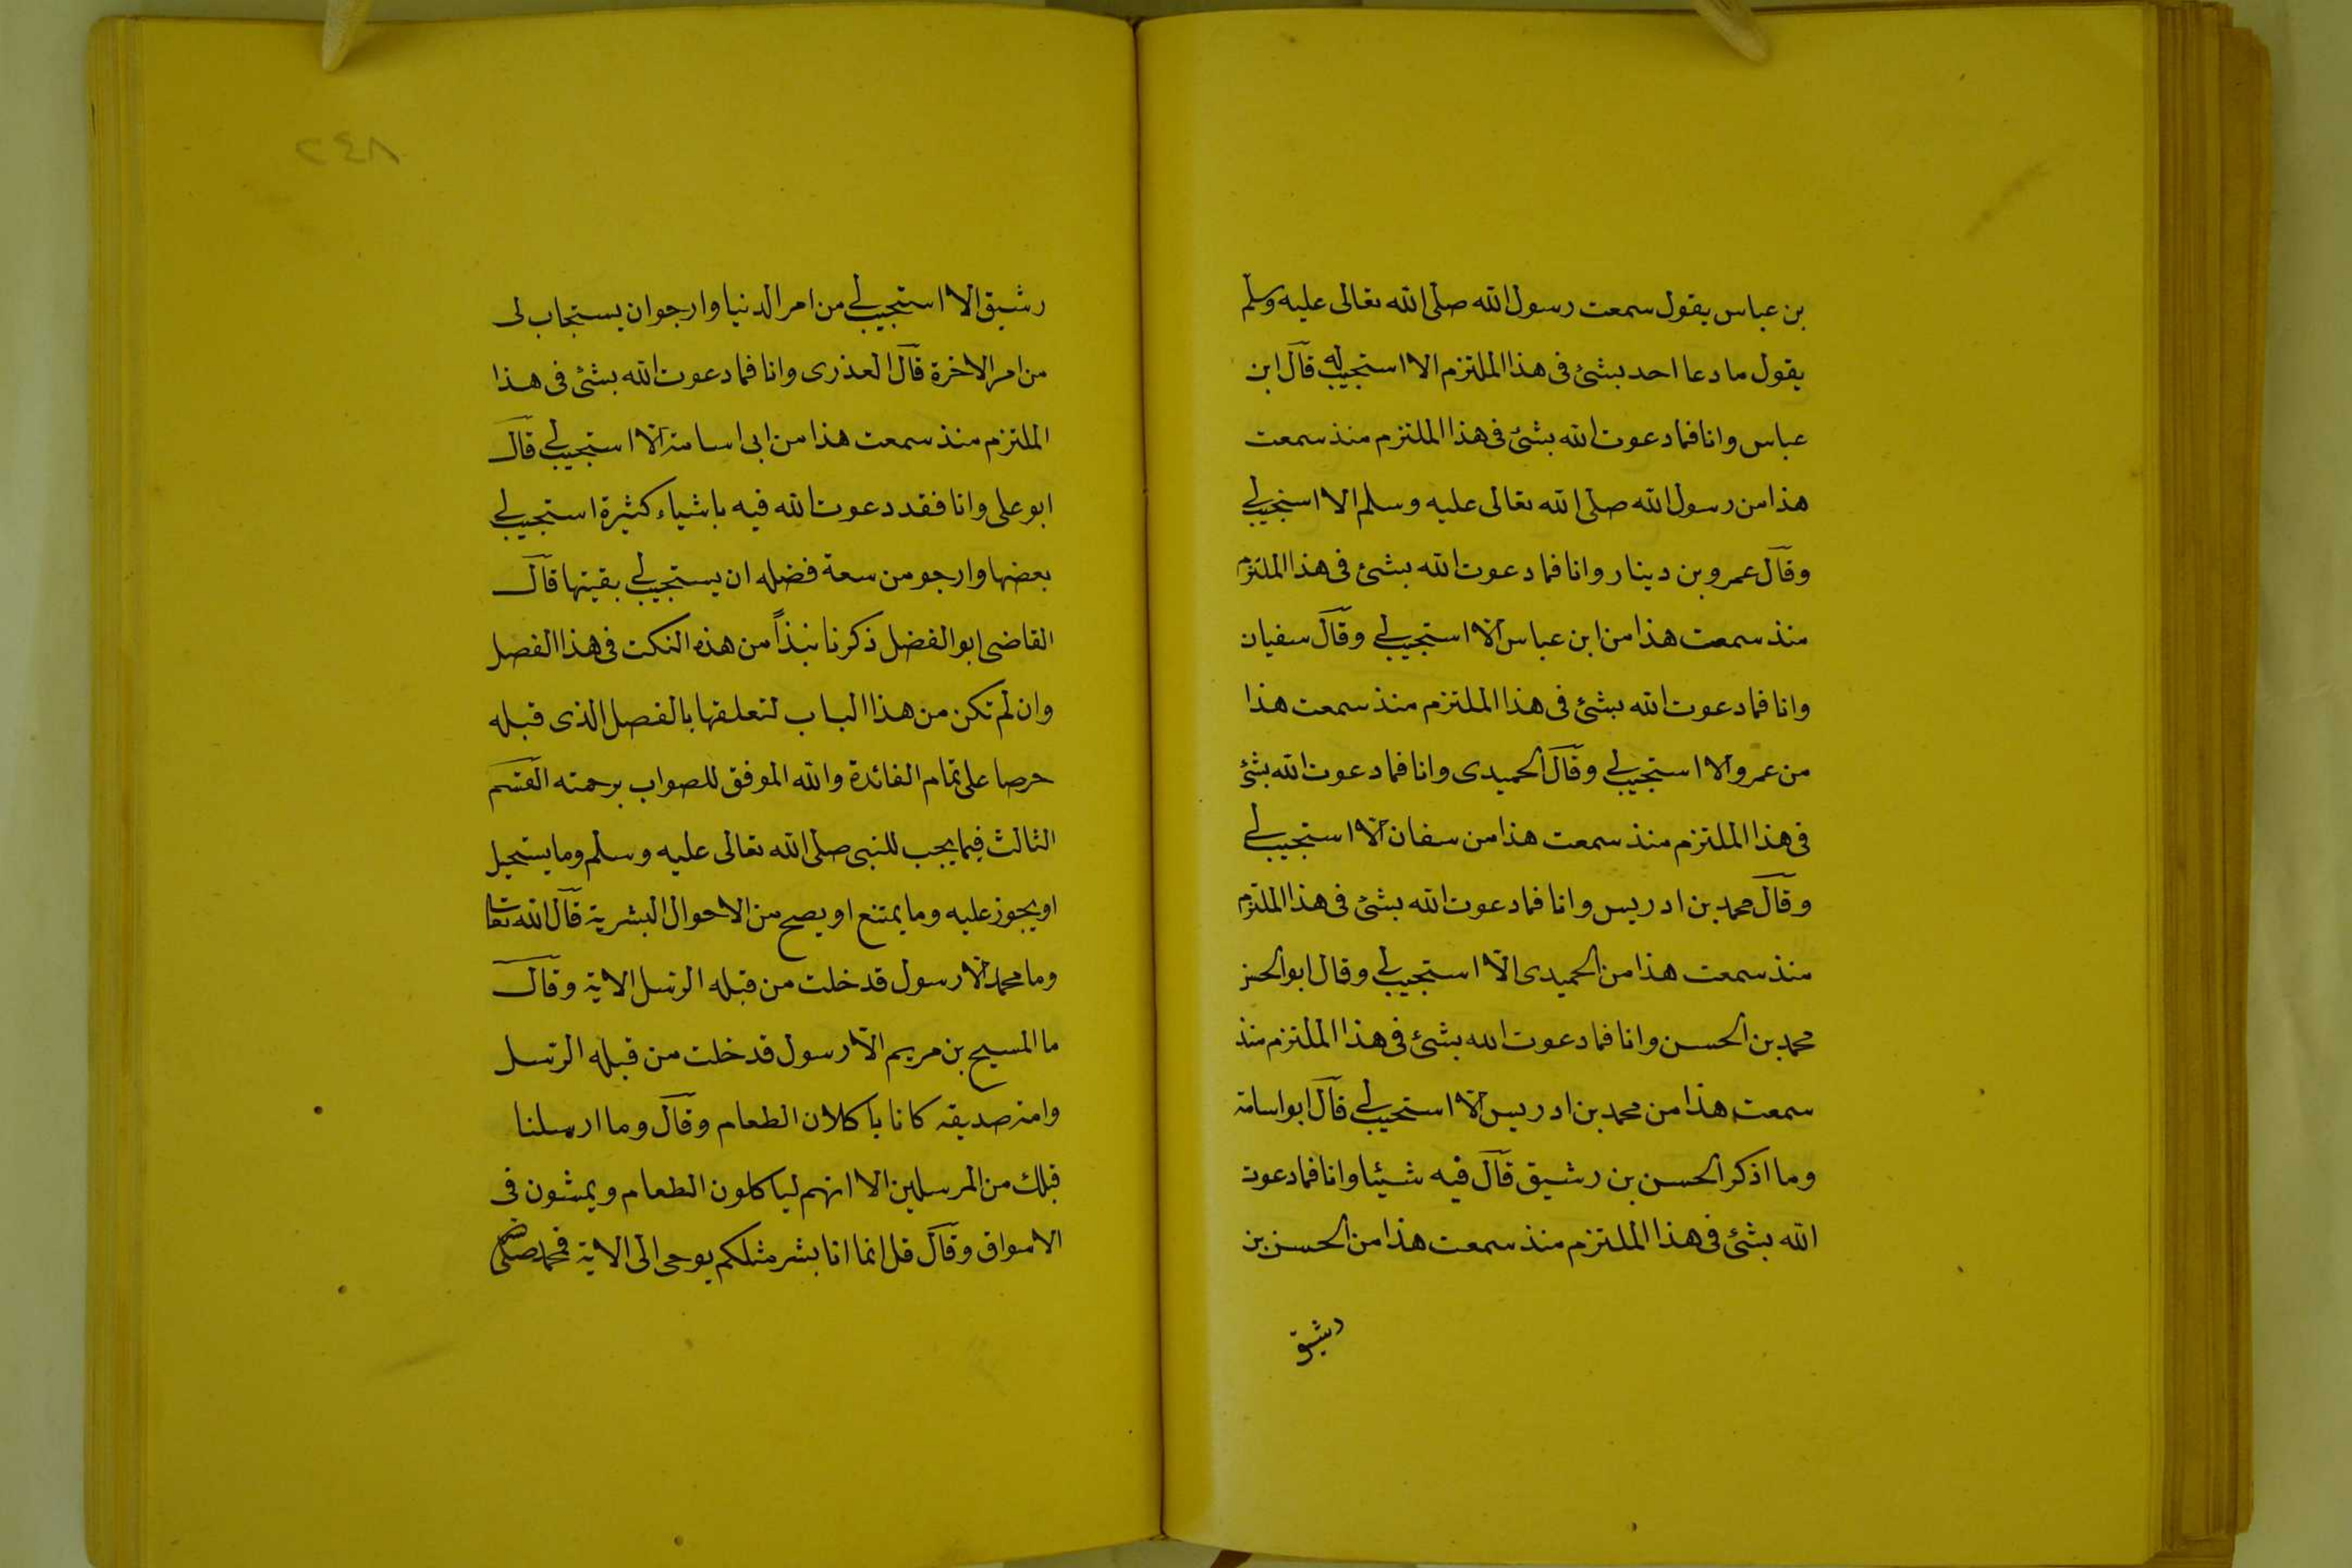 بن عباس يقول سمعت رسول الله صلى الله تعالى عليه وسلم
يقول ما دعا احد بشئ فى هذا الملتزم الا استجيب له قال ابن
عباس وانا فما دعوت الله بشئ فى هذا الملتزم منذ سمعت
هذا من رسول الله صلى الله تعالى عليه وسلم الا استجيب لى
وقال عمرو بن دينار وانا فما دعوت الله بشئ فى هذا الملتزم
منذ سمعت هذا من ابن عباس الا استجيب لى وقال سفيان
وانا فما دعوت الله بشئ فى هذا الملتزم منذ سمعت هذا
من عمرو الا استجيب لى وقال الحميدى وانا فما دعوت الله بشئ
فى هذا الملتزم منذ سمعت هذا من سفان الا استجيب لى
وقال محمد بن ادريس وانا فما دعوت الله بشئ فى هذا الملتزم
منذ سمعت هذا من الحميدى الا استجيب لى وقال ابو الحسن
محمد بن الحسن وانا فما دعوت الله بشئ فى هذا الملتزم منذ
سمعت هذا من محمد بن ادريس الا استجيب لى قال ابو اسامة
وما اذكر الحسن بن رشيق قال فيه شيئا وانا فما دعوت
الله بشئ فى هذا الملتزم منذ سمعت هذا من الحسن بن
رشيق
٢٤٨
رشيق الا استجيب لى من امر الدنيا وارجو ان يستجاب لى
من امر الاخرة قال العذرى وانا فما دعوت الله بشئ فى هذا
الملتزم منذ سمعت هذا من ابى اسامة الا استجيب لى قال
ابو على وانا فقد دعوت الله فيه باشياء كثيرة استجيب لى
بعضها وارجو من سعة فضله ان يستجيب لى بقيتها قال
القاضى ابو الفضل ذكرنا نبذاً من هذه النكت فى هذا الفصل
وان لم تكن من هذا الباب لتعلقها بالفصل الذى قبله
حرصا على تمام الفائدة والله الموفق للصواب برحمته القسم
الثالث فيما يجب للنبى صلى الله تعالى عليه وسلم وما يستحيل
او يجوز عليه وما يمتنع او يصح من الاحوال البشرية قال الله تعالى
وما محمد الا رسول قد خلت من قبله الرسل الاية وقال
ما المسيح بن مريم الا رسول قد خلت من قبله الرسل
وامه صديقة كانا ياكلان الطعام وقال وما ارسلنا
قبلك من المرسلين الا انهم لياكلون الطعام ويمشون فى
الاسواق وقال قل انما انا بشر مثلكم يوحى الى الاية فمحمد صلى